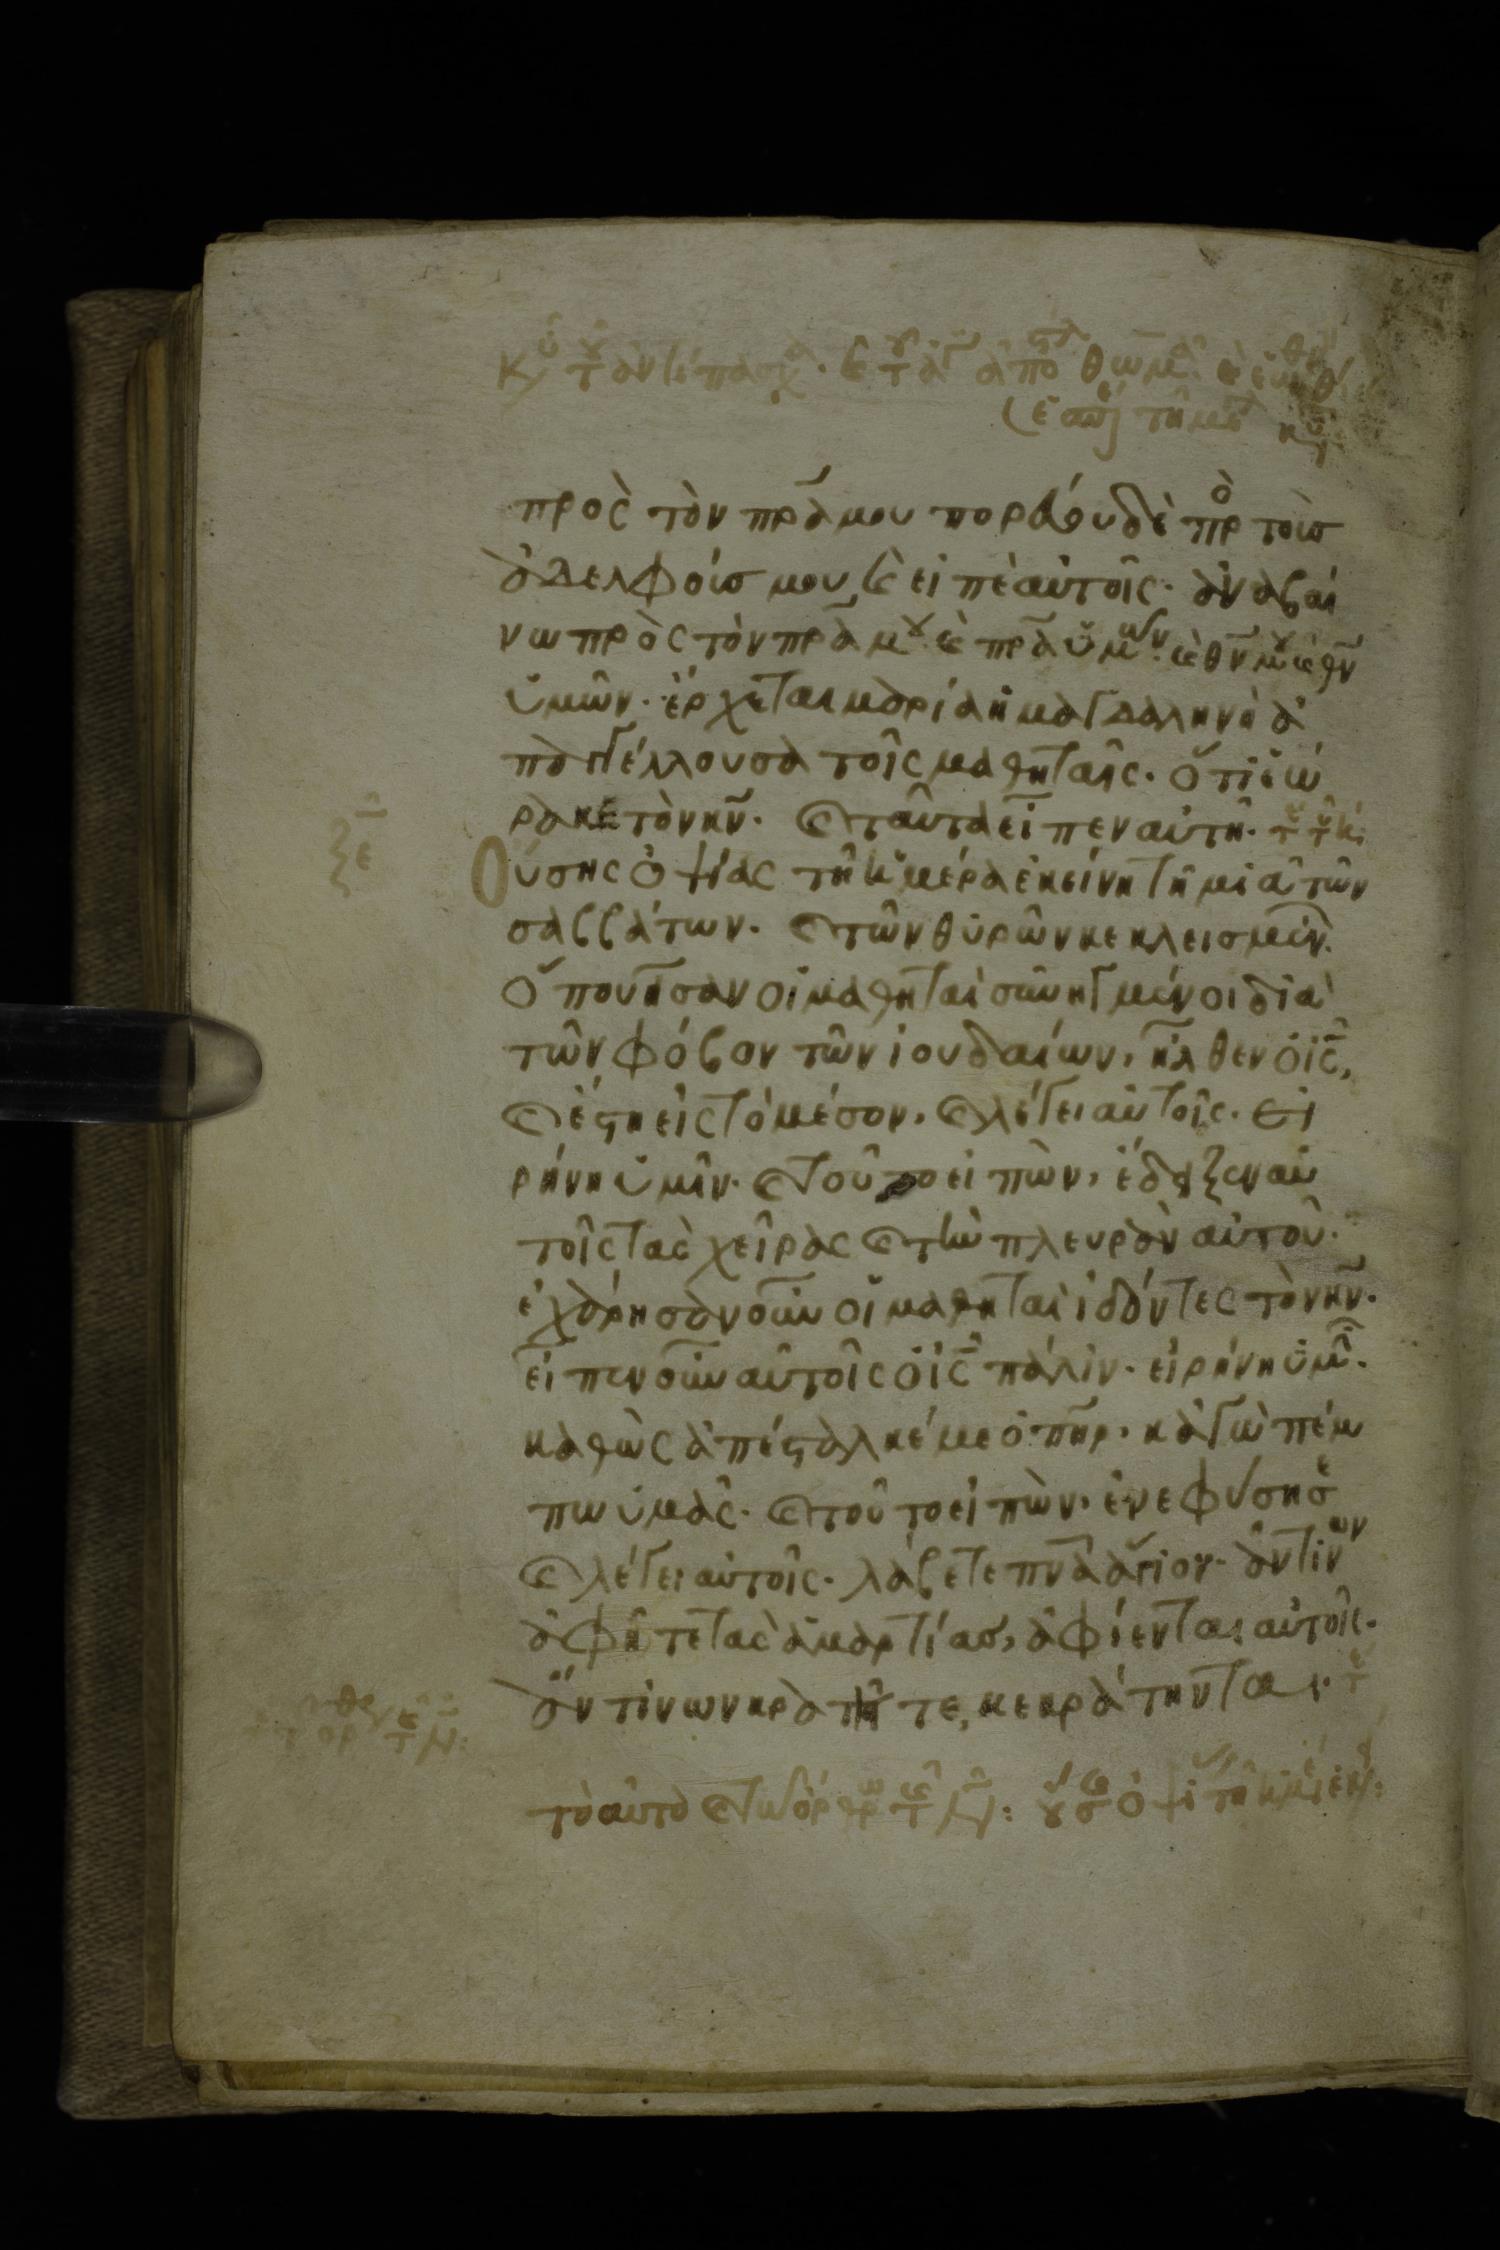 πρὸς τὸν πρ̅α μου πορεύου δὲ πρ̀ο τοῖσ
ἀδελφοῖσ μου, καὶ εἰπὲ αὐτοῖς· ἀναβαί
νω πρὸς τὸν πρ̅α μου καὶ πρ̅α ὑμων· καὶ θν̅ μου καὶ θν̅
ὑμῶν· ἔρχεται μαρία ἡ μαγδαληνὴ ἀ
παγγέλλουσα τοῖς μαθηταῖς· ὅτι ἑώ
ρακε τὸν κν̅· καὶ ταῦτα εἶπεν αὐτῆ·
ξε
Οὔσης ὀψίας τῆ ἡμέρα ἐκείνη τῆ μιᾶ τῶν
σαββάτων· καὶ τῶν θυρῶν κεκλεισμέν
ὅπου ἦσαν οἱ μαθηταὶ συνηγμένοι διὰ
τῶν φόβον τῶν ἰουδαίων, ἦλθεν ὁ ις̅,
καὶ ἔστη εἰς τὸ μέσον, καὶ λέγει αὐτοῖς· εἰ
ρήνη ὑμῖν· καὶ τοῦτο εἰπὼν, ἔδειξεν αὐ
τοῖς τὰς χεῖρας καὶ τὴν πλευρὰν αὐτοῦ·
ἐχάρησαν οὖν οἱ μαθηταὶ ἰδόντες τὸν κν̅·
εἶπεν οὖν αὐτοῖς ὁ ις̅ πάλιν· εἰρήνη ὑμῖ·
καθὼς ἀπέσταλκέ με ὁ πη̅ρ, κἀγὼ πέμ
πω ὑμᾶς· καὶ τοῦτο εἰπὼν, ἐνεφύσησε
καὶ λέγει αὐτοῖς· λάβετε πν̅α ἅγιον· ἄν τινων
ἀφῆτε τὰς ἁμαρτίασ, ἀφίενται αὐτοῖς·
ἄν τινων κρατῆτε, κεκράτηνται·